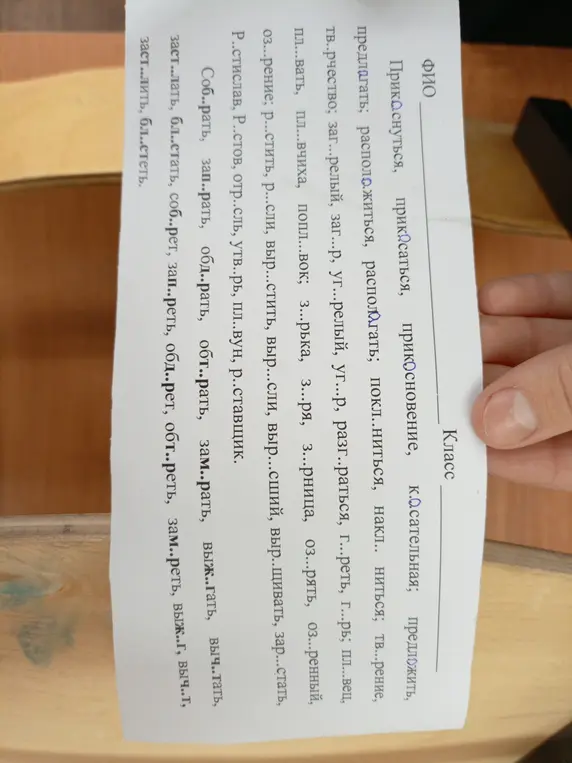 ФИО ____________________ Класс ____________________
Прикоснуться, прикосаться, прикосновение, косательная; предложить,
предлагать; расположиться, располагать; покл..ниться, накл.. ниться; тв...рение,
тв..рчество; заг...релый, заг...р, уг...релый, уг...р, разг..раться, г...реть, г...рь; пл...вец,
пл...вать, пл...вчиха, попл...вок; з...рька, з...ря, з...рница, оз...рять, оз...ренный,
оз...рение; р...стить, р...сли, выр...стить, выр...сли, выр...сший, выр..щивать, зар...стать,
Р..стислав, Р..стов, отр..сль, утв..рь, пл..вун, р..ставщик.
Соб..рать, зап..рать, обд..рать, обт..рать, зам..рать, выж..гать, выч..тать,
заст...лать, бл..стать, соб..рет, зап..реть, обд..рет, обт..реть, зам..реть, выж..г, выч..т,
заст..лить, бл..стеть.